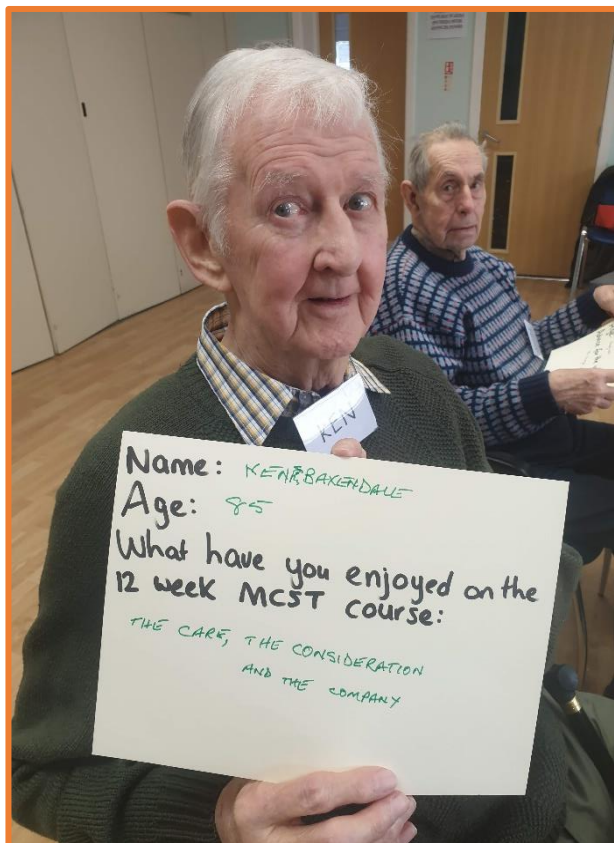 KEN
Name: KEN BAXENDALE
Age: 85
What have you enjoyed on the
12 week MCST course:
THE CARE, THE CONSIDERATION
AND THE COMPANY